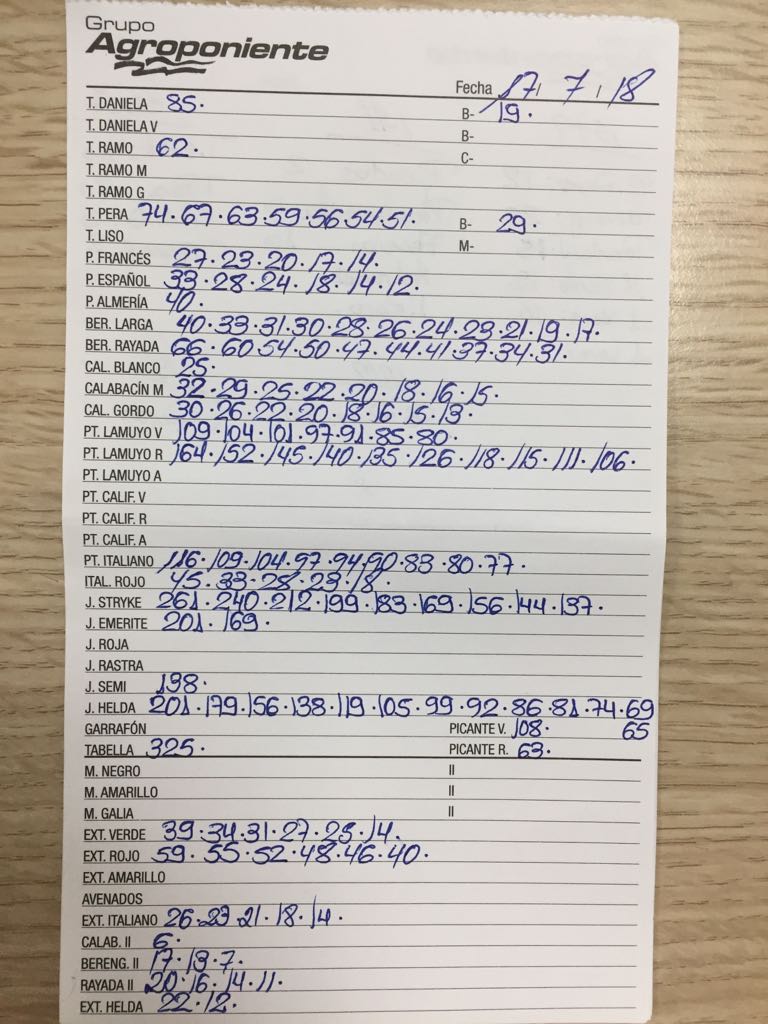 Grupo
Agroponiente
Fecha 17 / 7 / 18
T. DANIELA 85. B- 19.
T. DANIELA V B-
T. RAMO 62. C-
T. RAMO M
T. RAMO G
T. PERA 74.67.63.59.56.54.51. B- 29.
T. LISO M-
P. FRANCÉS 27.23.20.17.14.
P. ESPAÑOL 33.28.24.18.14.12.
P. ALMERÍA 40.
BER. LARGA 40.33.31.30.28.26.24.23.21.19.17.
BER. RAYADA 66.60.54.50.47.44.41.37.34.31.
CAL. BLANCO 25.
CALABACÍN M 32.29.25.22.20.18.16.15.
CAL. GORDO 30.26.22.20.18.16.15.13.
PT. LAMUYO V 109.104.101.97.91.85.80.
PT. LAMUYO R 164.152.145.140.135.126.118.115.111.106.
PT. LAMUYO A
PT. CALIF. V
PT. CALIF. R
PT. CALIF. A
PT. ITALIANO 116.109.104.97.94.90.83.80.77.
ITAL. ROJO 45.33.28.23.18.
J. STRYKE 261.240.212.199.183.169.156.144.137.
J. EMERITE 201.169.
J. ROJA
J. RASTRA
J. SEMI 198.
J. HELDA 201.179.156.138.119.105.99.92.86.81.74.69
GARRAFÓN PICANTE V. 108. 65
TABELLA 325. PICANTE R. 63.
M. NEGRO II
M. AMARILLO II
M. GALIA II
EXT. VERDE 39.34.31.27.25.14.
EXT. ROJO 59.55.52.48.46.40.
EXT. AMARILLO
AVENADOS
EXT. ITALIANO 26.23.21.18.14.
CALAB. II 6.
BERENG. II 17.13.7.
RAYADA II 20.16.14.11.
EXT. HELDA 22.12.